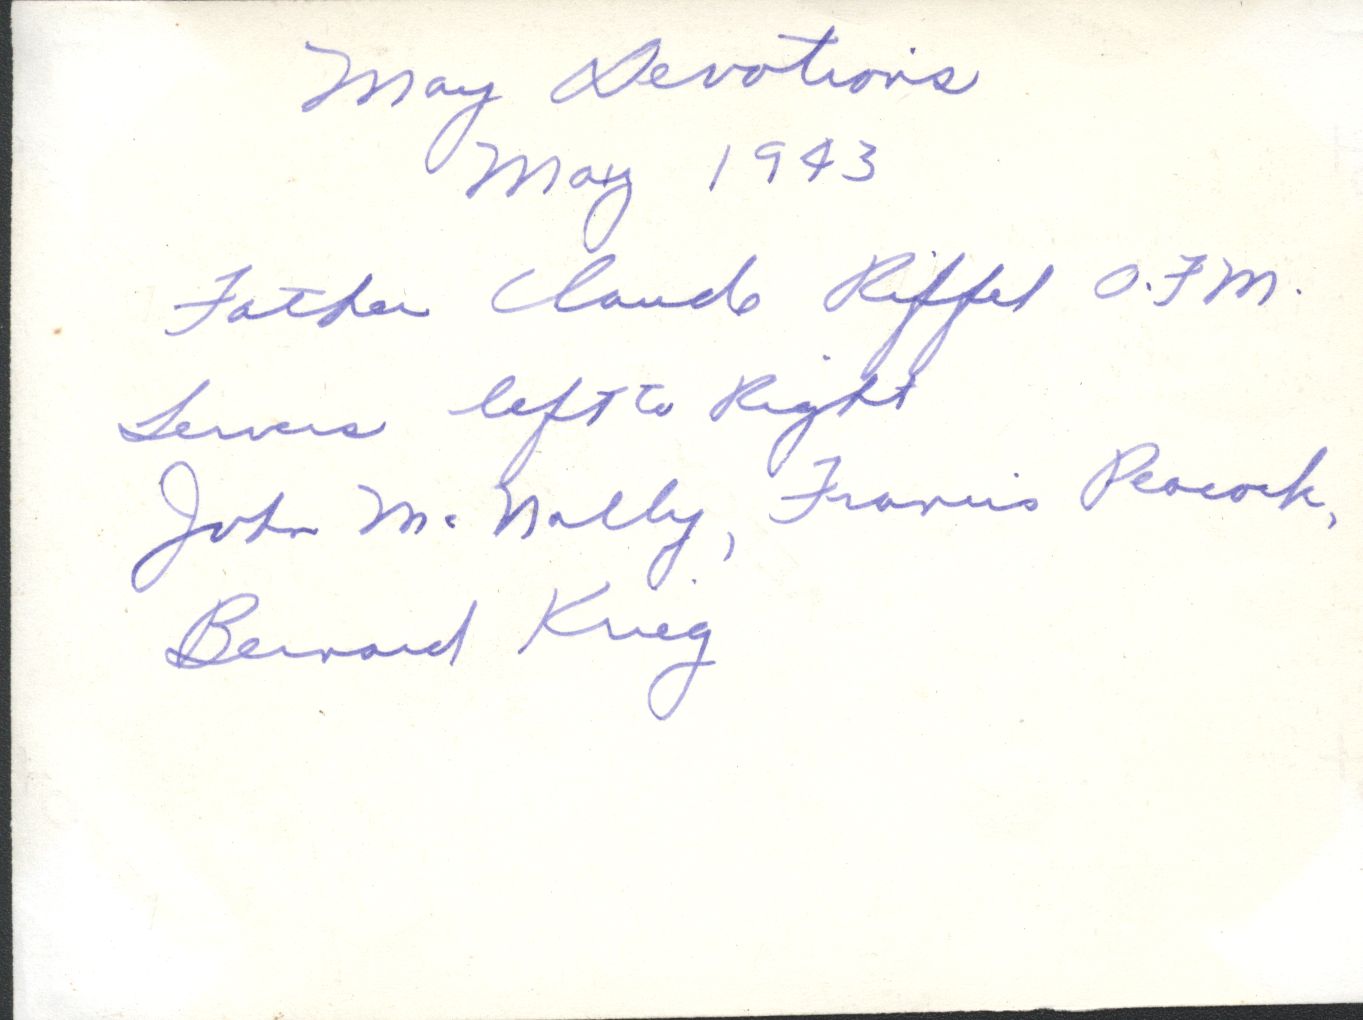 May Devotions
May 1943
Father Claude Riffel O.F.M.
Servers left to Right
John Mc Nally, Francis Peacock,
Bernard Krieg